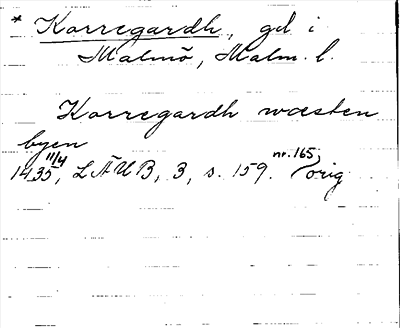 * Korregardh, gd i
Malmö, Malm. l.
Korregardh wæsten
byen
1435 11/4, LÄUB, 3, s. 159. nr. 165; orig